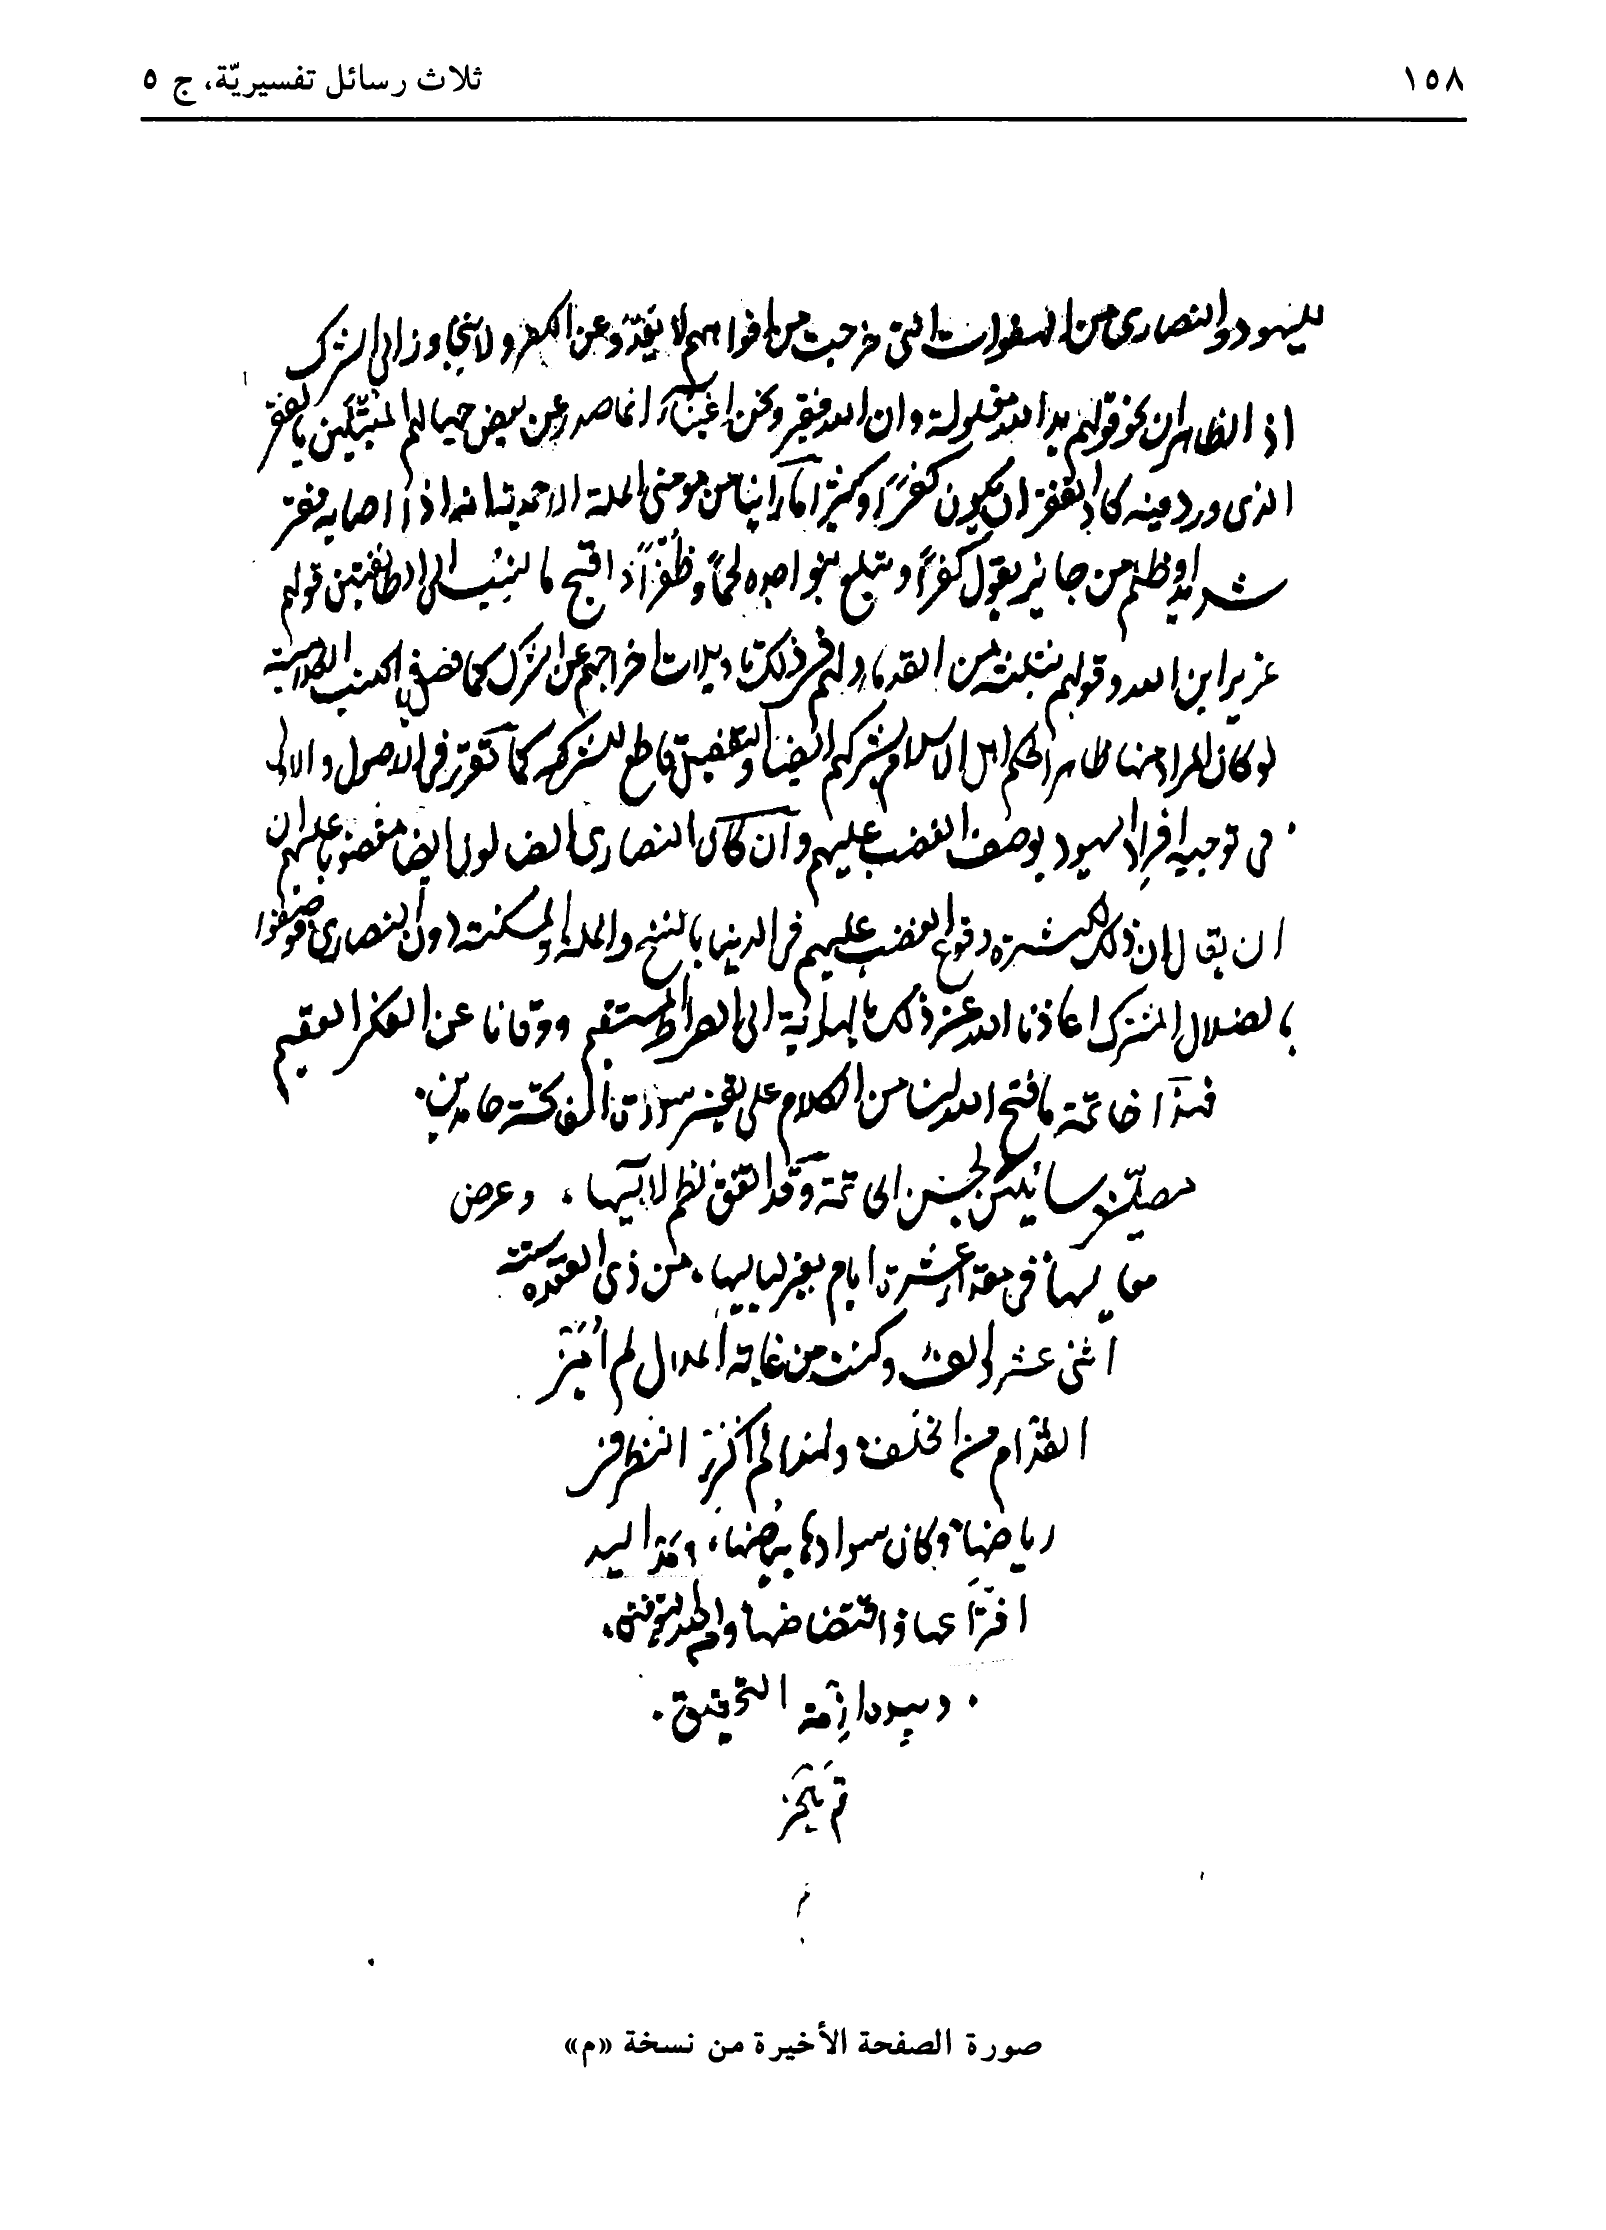 ١٥٨
ثلاث رسائل تفسيريّة، ج ٥
لليهود والنصارى من الهفوات التى خرجت من افواههم لا يعدو عن الكفر ولا يتجاوز الى الشرك
اذ الظاهر ان نحو قولهم يد الله مغلولة وان الله فقير ونحن اغنياء انما صدر عن بعض جهالهم المبتلين بالفقر
الذى ورد فيه كاد الفقر ان يكون كفرًا وكثيرًا ما رأينا من مومنى الملة الاحمدية انه اذا اصابه فقر
شديد او ظلم من جائر يقول كفرًا ويبلع بنواجده لحمًا وظفرًا واقبح ما ينسب الى الطائفتين قولهم
عزير ابن الله وقولهم بثلثة من القدماء ولهم فى ذلك تاويلات اخراجهم عن الشرك كما فصل فى الكتب الكلامية
لو كان المراد منها ظاهرا لحكم اهل الاسلام بشركهم ايضا والتفصيل قاطع للشركة كما تقرر فى الاصول والاولى
فى توجيه افراد اليهود بوصف الغضب عليهم وان كان النصارى الضالون ايضا مغضوبا عليهم
ان يقال ان ذلك لكثرة وقوع الغضب عليهم فى الدنيا بالمسخ والذلة والمسكنة دون النصارى فوصفوا
بالضلال المشترك اعاذنا الله عن ذلك بالهداية الى الصراط المستقيم ووقانا عن الفكر العقيم
فهذا خاتمة ما فتح الله لنا من الكلام على تفسير سورة الفاتحة حامدين
مصلين سائلين لحسن الخاتمة وقد اتفق نظم لآليها، وعرض
معاليها فى مقدار عشرة ايام بغير لياليها، من ذى القعدة سنة
اثنى عشر والف وكنت من غاية الملال لم اميز
القدام من الخلف ولهذا لم اكرر النظر فى
رياضها وكان سوادها بياضها، وقد اليد
والحمد لله
وبيده ازمة التوفيق
تم
صورة الصفحة الأخيرة من نسخة «م»